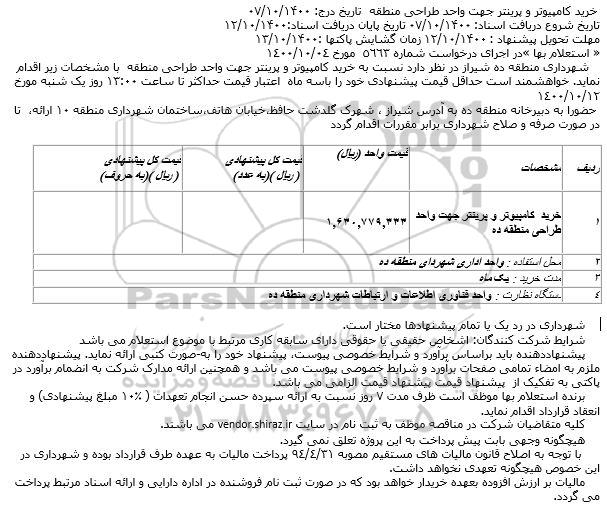 خرید کامپیوتر و پرینتر جهت واحد طراحی منطقه تاریخ درج: ۰۷/۱۰/۱۴۰۰
تاریخ شروع دریافت اسناد: ۰۷/۱۰/۱۴۰۰ تاریخ پایان دریافت اسناد:۱۲/۱۰/۱۴۰۰
مهلت تحویل پیشنهاد : ۱۲/۱۰/۱۴۰۰ زمان گشایش پاکتها :۱۳/۱۰/۱۴۰۰
« استعلام بها »در اجرای درخواست شماره ۵٦٦۳ مورخ ۱٤۰۰/۱۰/۰٤
شهرداری منطقه ده شیراز در نظر دارد نسبت به خرید کامپیوتر و پرینتر جهت واحد طراحی منطقه با مشخصات زیر اقدام
نماید. خواهشمند است حداقل قیمت پیشنهادی خود را باسه ماه اعتبار قیمت حداکثر تا ساعت ۱۳:۰۰ روز یک شنبه مورخ
۱٤۰۰/۱۰/۱۲
حضورا به دبیرخانه منطقه ده به آدرس شیراز ، شهرک گلدشت حافظ،خیابان هاتف،ساختمان شهرداری منطقه ۱۰ ارائه، تا
در صورت صرفه و صلاح شهرداری برابر مقررات اقدام گردد
ردیف مشخصات قیمت واحد (ریال) قیمت کل پیشنهادی قیمت کل پیشنهادی
( ریال )(به عدد) ( ریال )(به حروف)
۱ خرید کامپیوتر و پرینتر جهت واحد طراحی منطقه ده ۱,۶۳۰,۷۷۹,۳۳۳
۲ محل استفاده : واحد اداری شهردای منطقه ده
۳ مدت خرید : یک‌ماه
٤ دستگاه نظارت : واحد فناوری اطلاعات و ارتباطات شهرداری منطقه ده
شهرداری در رد یک یا تمام پیشنهادها مختار است.
شرایط شرکت کنندگان: اشخاص حقیقی یا حقوقی دارای سابقه کاری مرتبط با موضوع استعلام می باشد
پیشنهاددهنده باید براساس برآورد و شرایط خصوصی پیوست، پیشنهاد خود را به-صورت کتبی ارائه نماید. پیشنهاددهنده
ملزم به امضاء تمامی صفحات برآورد و شرایط خصوصی پیوست می باشد و همچنین ارائه مدارک شرکت به انضمام برآورد در
پاکتی به تفکیک از پیشنهاد قیمت پیشنهاد قیمت الزامی می باشد.
برنده استعلام بها موظف است ظرف مدت ۷ روز نسبت به ارائه سپرده حسن انجام تعهدات ( ۱۰٪ مبلغ پیشنهادی) و
انعقاد قرارداد اقدام نماید.
کلیه متقاضیان شرکت در مناقصه موظف به ثبت نام در سایت vendor.shiraz.ir می باشند.
هیچگونه وجهی بابت پیش پرداخت به این پروژه تعلق نمی گیرد.
با توجه به اصلاح قانون مالیات های مستقیم مصوبه ۹٤/٤/۳۱ پرداخت مالیات به عهده طرف قرارداد بوده و شهرداری در
این خصوص هیچگونه تعهدی نخواهد داشت.
مالیات بر ارزش افزوده بعهده خریدار خواهد بود که در صورت ثبت نام فروشنده در اداره دارایی و ارائه اسناد مرتبط پرداخت
می گردد.
ParsNamadData
۰۲۱-۸۸۳۴۹۶۷۰-۵